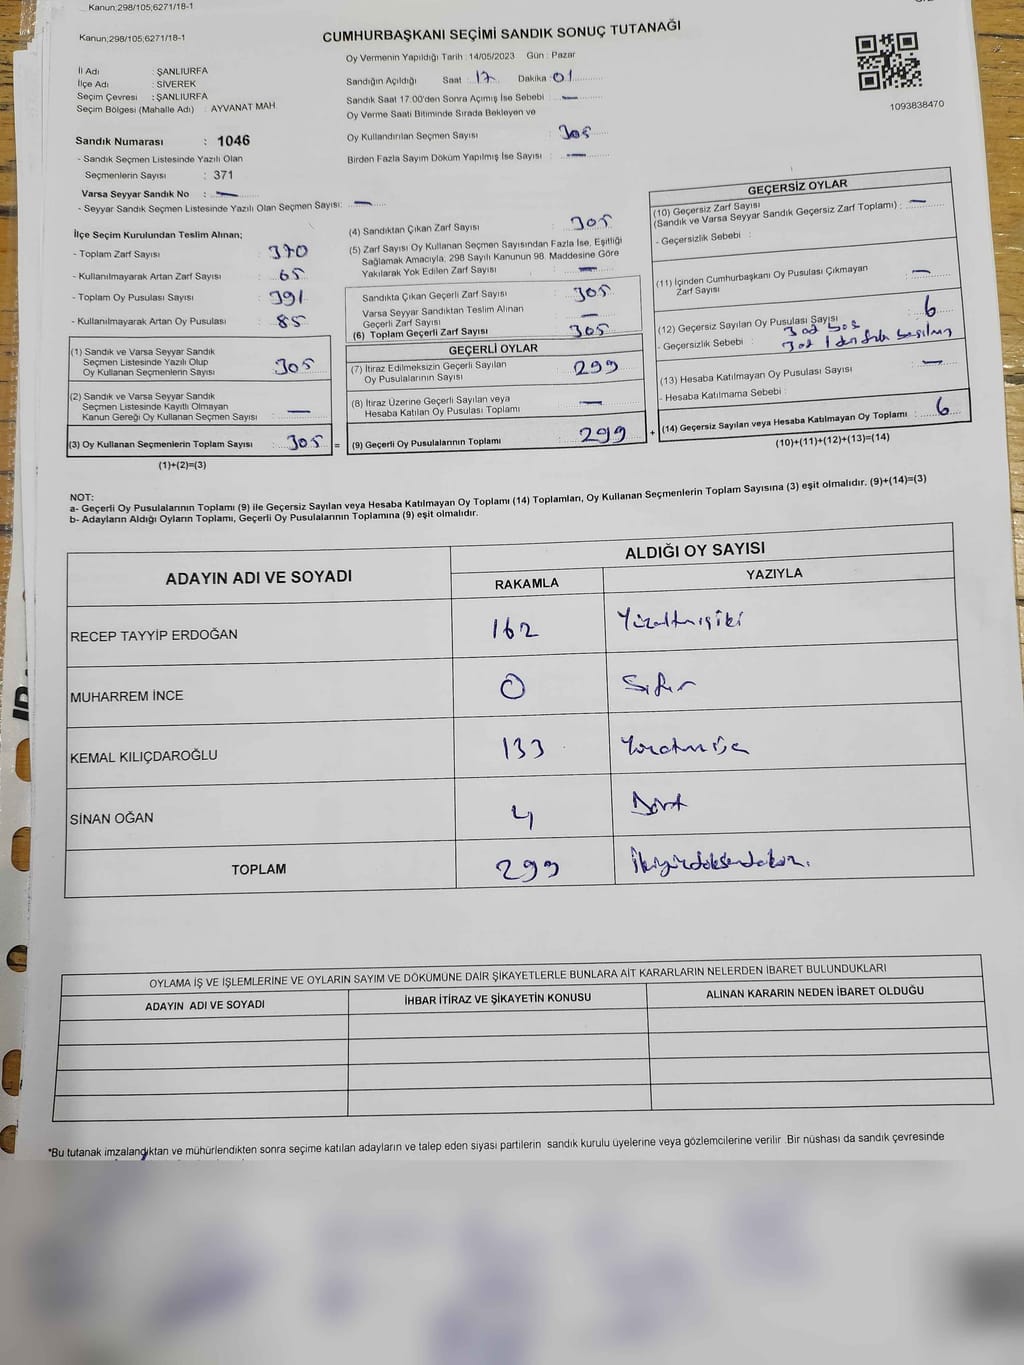 Kanun;298/105;6271/18-1
Kanun;298/105;6271/18-1
CUMHURBAŞKANI SEÇİMİ SANDIK SONUÇ TUTANAĞI
İl Adı : ŞANLIURFA
İlçe Adı : SİVEREK
Seçim Çevresi : ŞANLIURFA
Seçim Bölgesi (Mahalle Adı) : AYVANAT MAH.
Sandık Numarası : 1046
- Sandık Seçmen Listesinde Yazılı Olan
Seçmenlerin Sayısı : 371
Varsa Seyyar Sandık No : —
- Seyyar Sandık Seçmen Listesinde Yazılı Olan Seçmen Sayısı: —
Oy Vermenin Yapıldığı Tarih : 14/05/2023 Gün : Pazar
Sandığın Açıldığı Saat : 17 Dakika : 01
Sandık Saat 17:00'den Sonra Açımış İse Sebebi : —
Oy Verme Saati Bitiminde Sırada Bekleyen ve
Oy Kullandırılan Seçmen Sayısı : 305
Birden Fazla Sayım Döküm Yapılmış İse Sayısı : —
1093838470
İlçe Seçim Kurulundan Teslim Alınan;
- Toplam Zarf Sayısı : 370
- Kullanılmayarak Artan Zarf Sayısı : 65
- Toplam Oy Pusulası Sayısı : 391
- Kullanılmayarak Artan Oy Pusulası : 85
(1) Sandık ve Varsa Seyyar Sandık
Seçmen Listesinde Yazılı Olup
Oy Kullanan Seçmenlerin Sayısı : 305
(2) Sandık ve Varsa Seyyar Sandık
Seçmen Listesinde Kayıtlı Olmayan
Kanun Gereği Oy Kullanan Seçmen Sayısı : —
(3) Oy Kullanan Seçmenlerin Toplam Sayısı : 305 =
(1)+(2)=(3)
(4) Sandıktan Çıkan Zarf Sayısı : 305
(5) Zarf Sayısı Oy Kullanan Seçmen Sayısından Fazla İse, Eşitliği
Sağlamak Amacıyla; 298 Sayılı Kanunun 98. Maddesine Göre
Yakılarak Yok Edilen Zarf Sayısı : —
Sandıkta Çıkan Geçerli Zarf Sayısı : 305
Varsa Seyyar Sandıktan Teslim Alınan
Geçerli Zarf Sayısı : —
(6) Toplam Geçerli Zarf Sayısı : 305
GEÇERLİ OYLAR
(7) İtiraz Edilmeksizin Geçerli Sayılan
Oy Pusulalarının Sayısı : 299
(8) İtiraz Üzerine Geçerli Sayılan veya
Hesaba Katılan Oy Pusulası Toplamı : —
(9) Geçerli Oy Pusulalarının Toplamı : 299 +
GEÇERSİZ OYLAR
(10) Geçersiz Zarf Sayısı
(Sandık ve Varsa Seyyar Sandık Geçersiz Zarf Toplamı) : —
- Geçersizlik Sebebi :
(11) İçinden Cumhurbaşkanı Oy Pusulası Çıkmayan
Zarf Sayısı : —
(12) Geçersiz Sayılan Oy Pusulası Sayısı : 6
- Geçersizlik Sebebi : 3 ad boş
3 ad 1 den fazla basılmış
(13) Hesaba Katılmayan Oy Pusulası Sayısı : —
- Hesaba Katılmama Sebebi :
(14) Geçersiz Sayılan veya Hesaba Katılmayan Oy Toplamı : 6
(10)+(11)+(12)+(13)=(14)
NOT:
a- Geçerli Oy Pusulalarının Toplamı (9) ile Geçersiz Sayılan veya Hesaba Katılmayan Oy Toplamı (14) Toplamları, Oy Kullanan Seçmenlerin Toplam Sayısına (3) eşit olmalıdır. (9)+(14)=(3)
b- Adayların Aldığı Oyların Toplamı, Geçerli Oy Pusulalarının Toplamına (9) eşit olmalıdır.
ADAYIN ADI VE SOYADI
ALDIĞI OY SAYISI
RAKAMLA YAZIYLA
RECEP TAYYİP ERDOĞAN 162 Yüzaltmışiki
MUHARREM İNCE 0 Sıfır
KEMAL KILIÇDAROĞLU 133
SİNAN OĞAN 4 Dört
TOPLAM 299 İkiyüzdoksandokuz.
OYLAMA İŞ VE İŞLEMLERİNE VE OYLARIN SAYIM VE DÖKÜMÜNE DAİR ŞİKAYETLERLE BUNLARA AİT KARARLARIN NELERDEN İBARET BULUNDUKLARI
ADAYIN ADI VE SOYADI İHBAR İTİRAZ VE ŞİKAYETİN KONUSU ALINAN KARARIN NEDEN İBARET OLDUĞU
*Bu tutanak imzalandıktan ve mühürlendikten sonra seçime katılan adayların ve talep eden siyasi partilerin sandık kurulu üyelerine veya gözlemcilerine verilir .Bir nüshası da sandık çevresinde